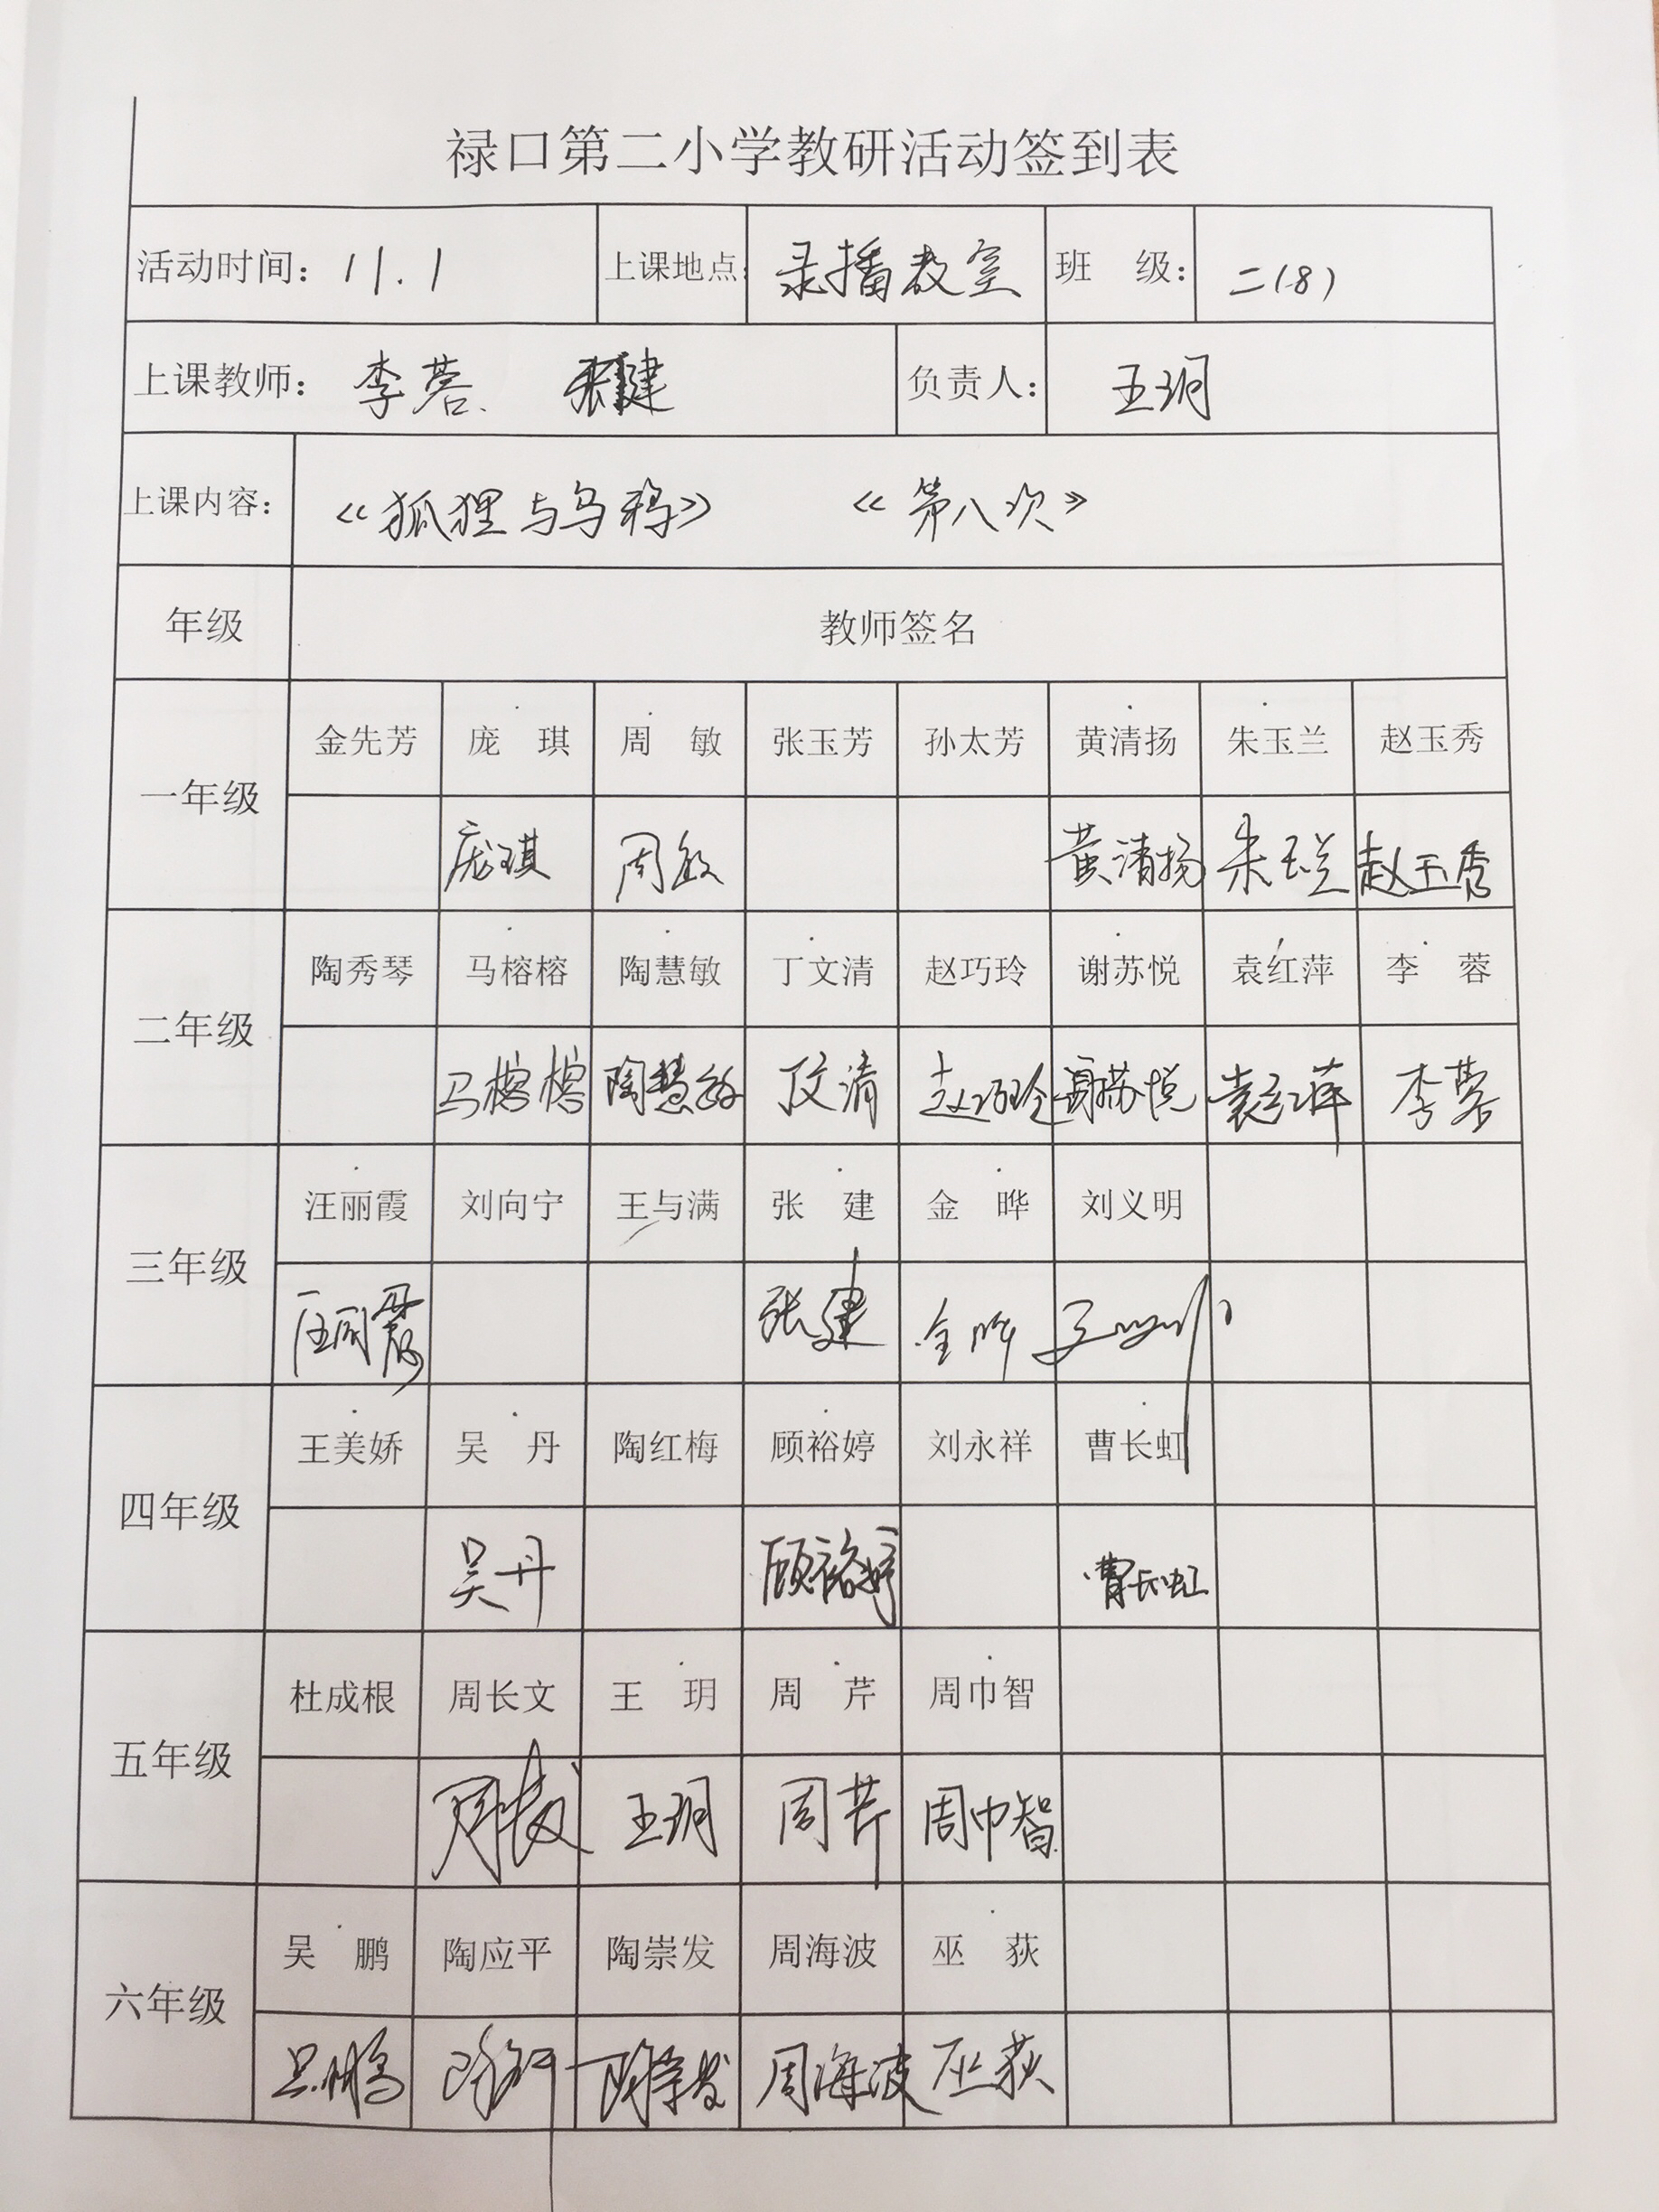 禄口第二小学教研活动签到表
活动时间：11.1 上课地点： 录播教室 班 级： 二(8)
上课教师： 李蓉、 张建 负责人： 王玥
上课内容： 《狐狸与乌鸦》 《第八次》
年级 教师签名
一年级 金先芳 庞 琪 周 敏 张玉芳 孙太芳 黄清扬 朱玉兰 赵玉秀
庞琪 周敏 黄清扬 朱玉兰 赵玉秀
二年级 陶秀琴 马榕榕 陶慧敏 丁文清 赵巧玲 谢苏悦 袁红萍 李 蓉
马榕榕 陶慧敏 丁文清 赵巧玲 谢苏悦 袁红萍 李蓉
三年级 汪丽霞 刘向宁 王与满 张 建 金 晔 刘义明
汪丽霞 张建 金晔
四年级 王美娇 吴 丹 陶红梅 顾裕婷 刘永祥 曹长虹
吴丹 顾裕婷 曹长虹
五年级 杜成根 周长文 王 玥 周 芹 周巾智
周长文 王玥 周芹 周巾智
六年级 吴 鹏 陶应平 陶崇发 周海波 巫 荻
吴鹏 陶应平 陶崇发 周海波 巫荻